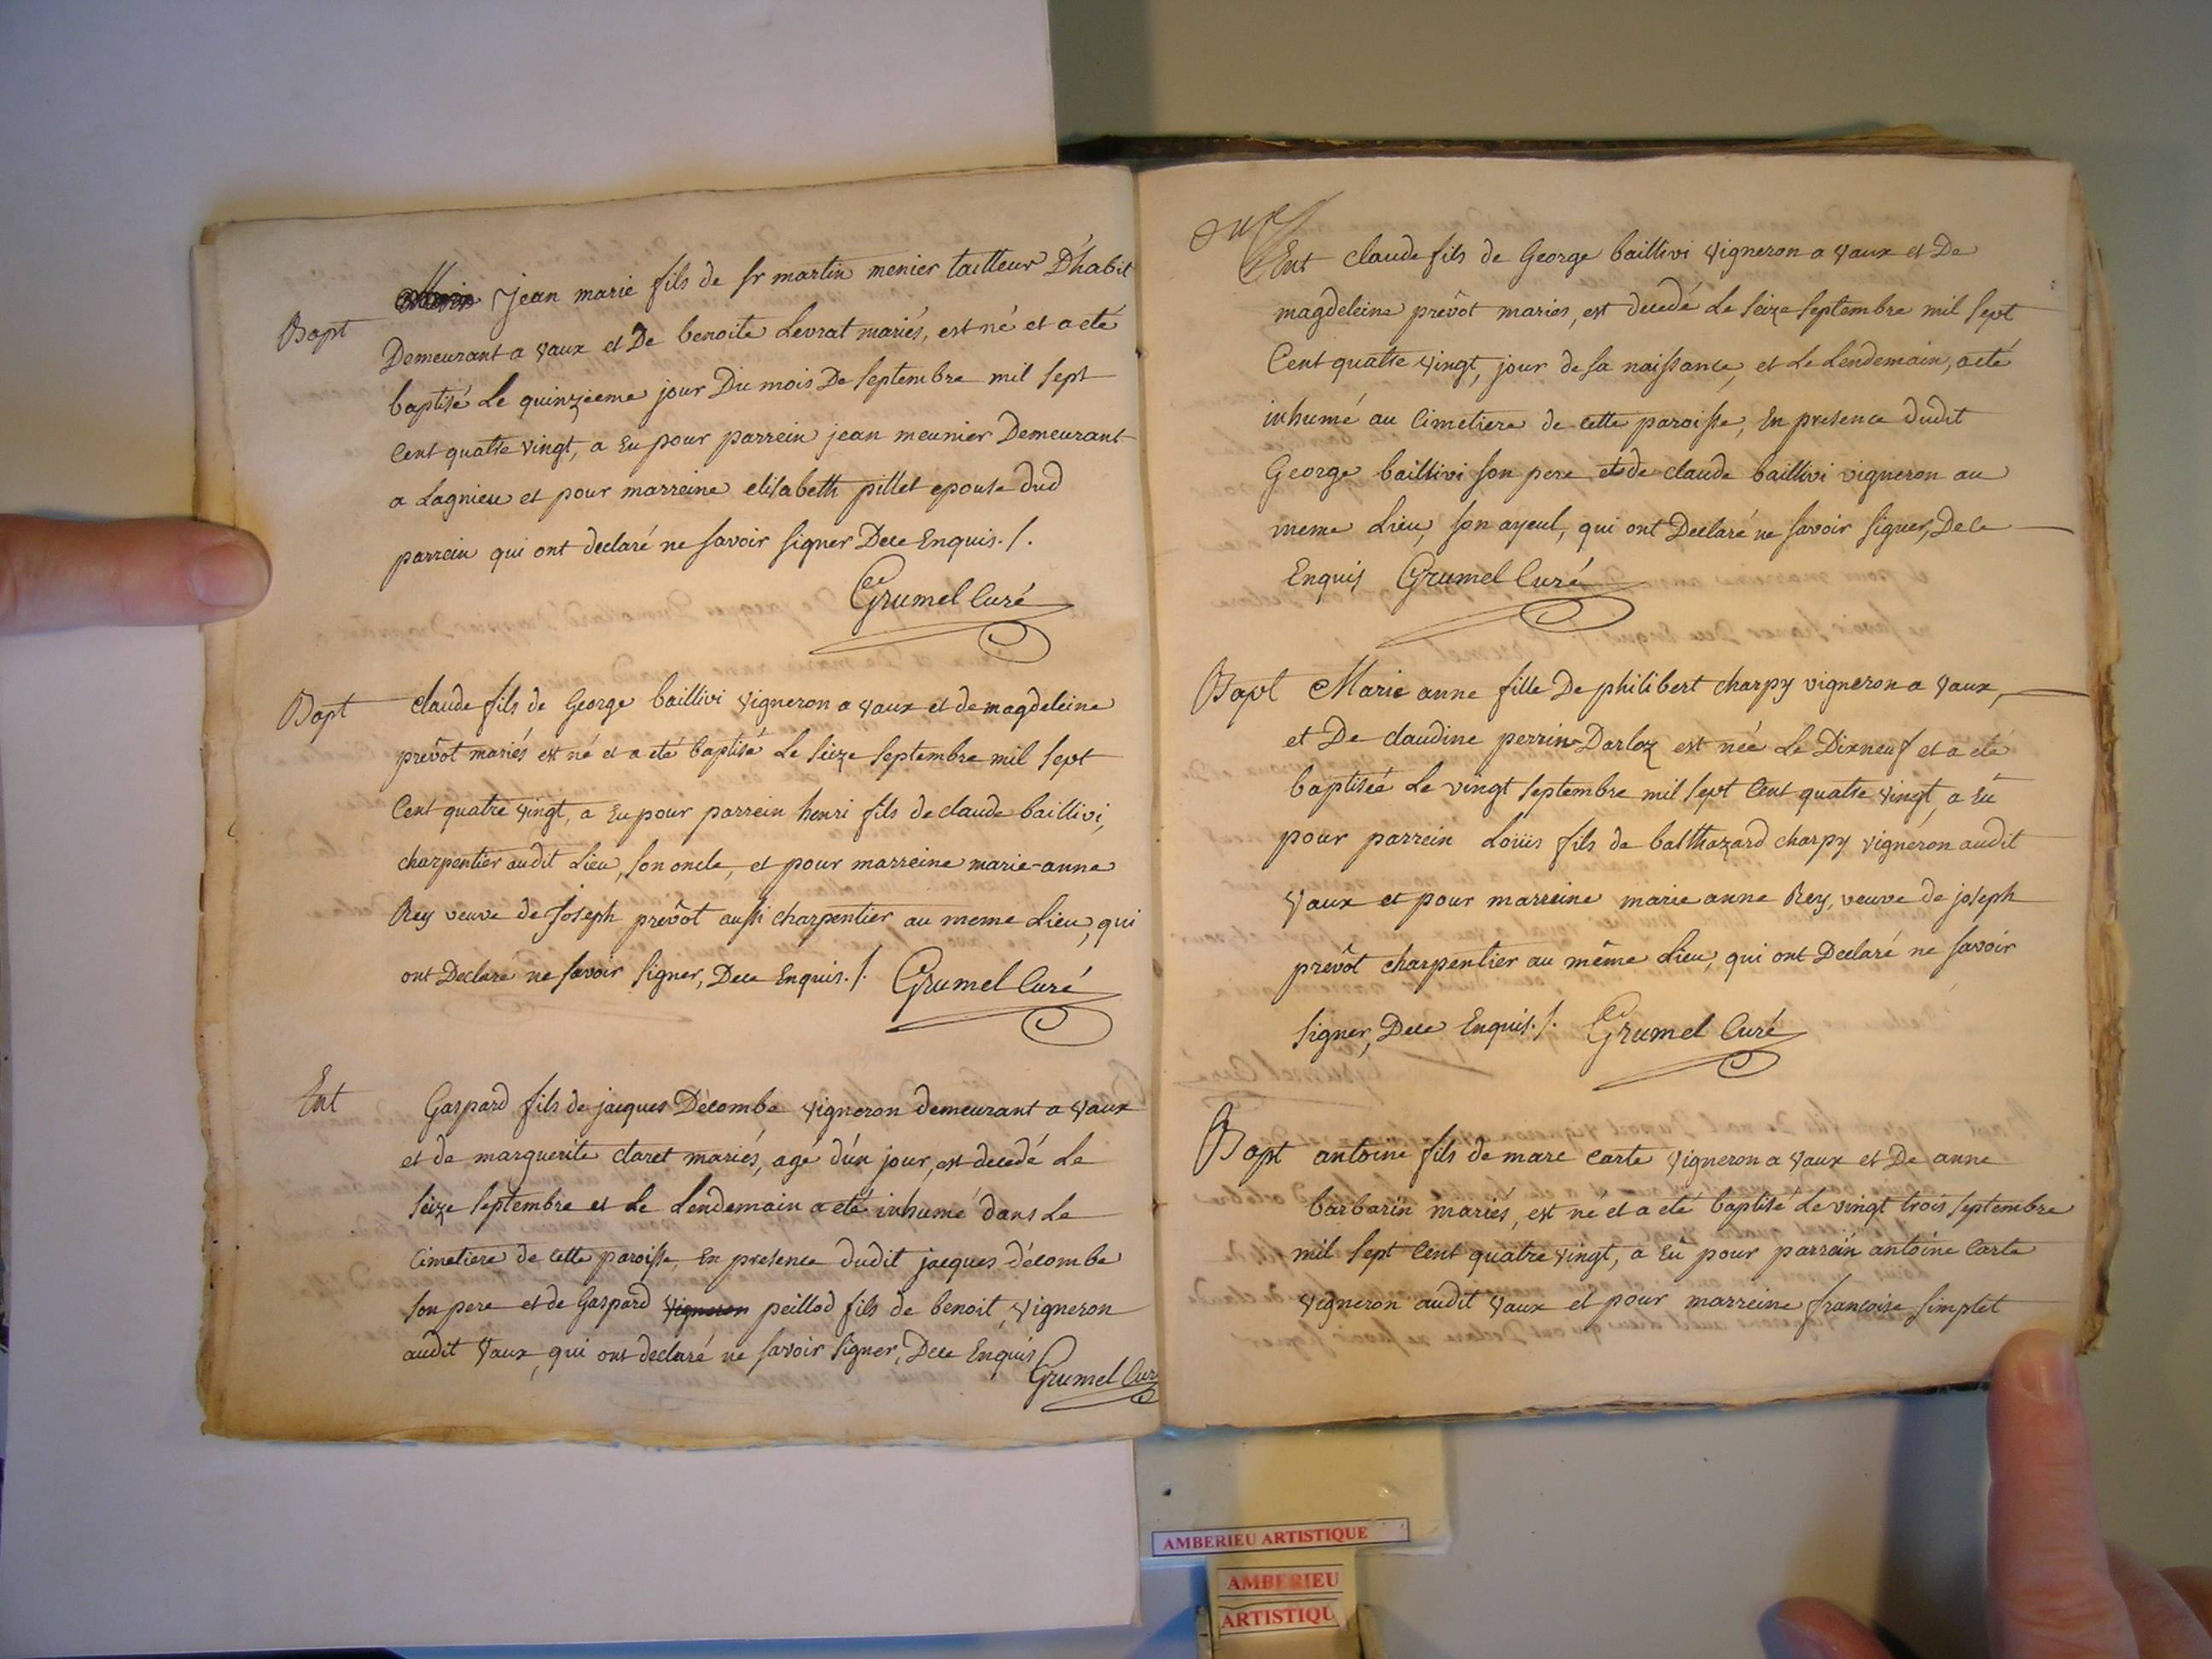 Bapt jean marie fils de sr martin menier tailleur D'habit
Demeurant a vaux et De benoite Levrat mariés, est né et a eté
baptisé Le quinzieme jour Du mois De septembre mil sept
Cent quatre vingt, a Eu pour parrein jean meunier Demeurant
a Lagnieu et pour marreine elisabeth pillet epouse dud
parrein qui ont declaré ne savoir signer Dece Enquis./.
Grumel Curé
Bapt claude fils de George baillivi vigneron a vaux et de magdeleine
prevôt mariés est né et a eté baptisé Le seize septembre mil sept
Cent quatre vingt, a Eu pour parrein henri fils de claude baillivi,
charpentier audit Lieu, son oncle, et pour marreine marie-anne
Rey veuve de Joseph prevôt aussi charpentier au meme Lieu, qui
ont Declaré ne savoir signer, Dece Enquis./. Grumel Curé
Ent Gaspard fils de jacques Décombe vigneron demeurant a vaux
et de marguerite claret mariés, agé d'un jour, est decedé Le
seize septembre et Le Lendemain a eté inhumé dans Le
Cimetiere de cette paroisse, En presence dudit jacques décombe
son pere et de Gaspard vigneron peillod fils de benoit, vigneron
audit vaux, qui ont declaré ne savoir signer, Dece Enquis
Grumel Cur
Ent claude fils de George baillivi vigneron a vaux et De
magdeleine prevôt mariés, est decedé Le seize septembre mil sept
Cent quatre vingt, jour de sa naissance, et Le Lendemain, a eté
inhumé au Cimetiere de cette paroisse, En presence dudit
George baillivi son pere et de claude baillivi vigneron au
meme Lieu, son ayeul, qui ont Declaré ne savoir signer, De ce
Enquis Grumel Curé
Bapt Marie anne fille De philibert charpy vigneron a vaux,
et De claudine perrin-Darloz est née Le Dixneuf et a eté
baptisée Le vingt septembre mil sept Cent quatre vingt, a Eu
pour parrein Loüis fils de balthazard charpy vigneron audit
vaux et pour marreine marie anne Rey, veuve de joseph
prevôt charpentier au même Lieu, qui ont Declaré ne savoir
signer, Dece Enquis./. Grumel Curé
Bapt antoine fils de marc carte vigneron a vaux et De anne
barbarin mariés, est né et a eté baptisé Le vingt trois septembre
mil sept Cent quatre vingt, a Eu pour parrein antoine Carte
vigneron audit vaux et pour marreine francoise simplet
AMBERIEU ARTISTIQUE
AMBERIEU
ARTISTIQU